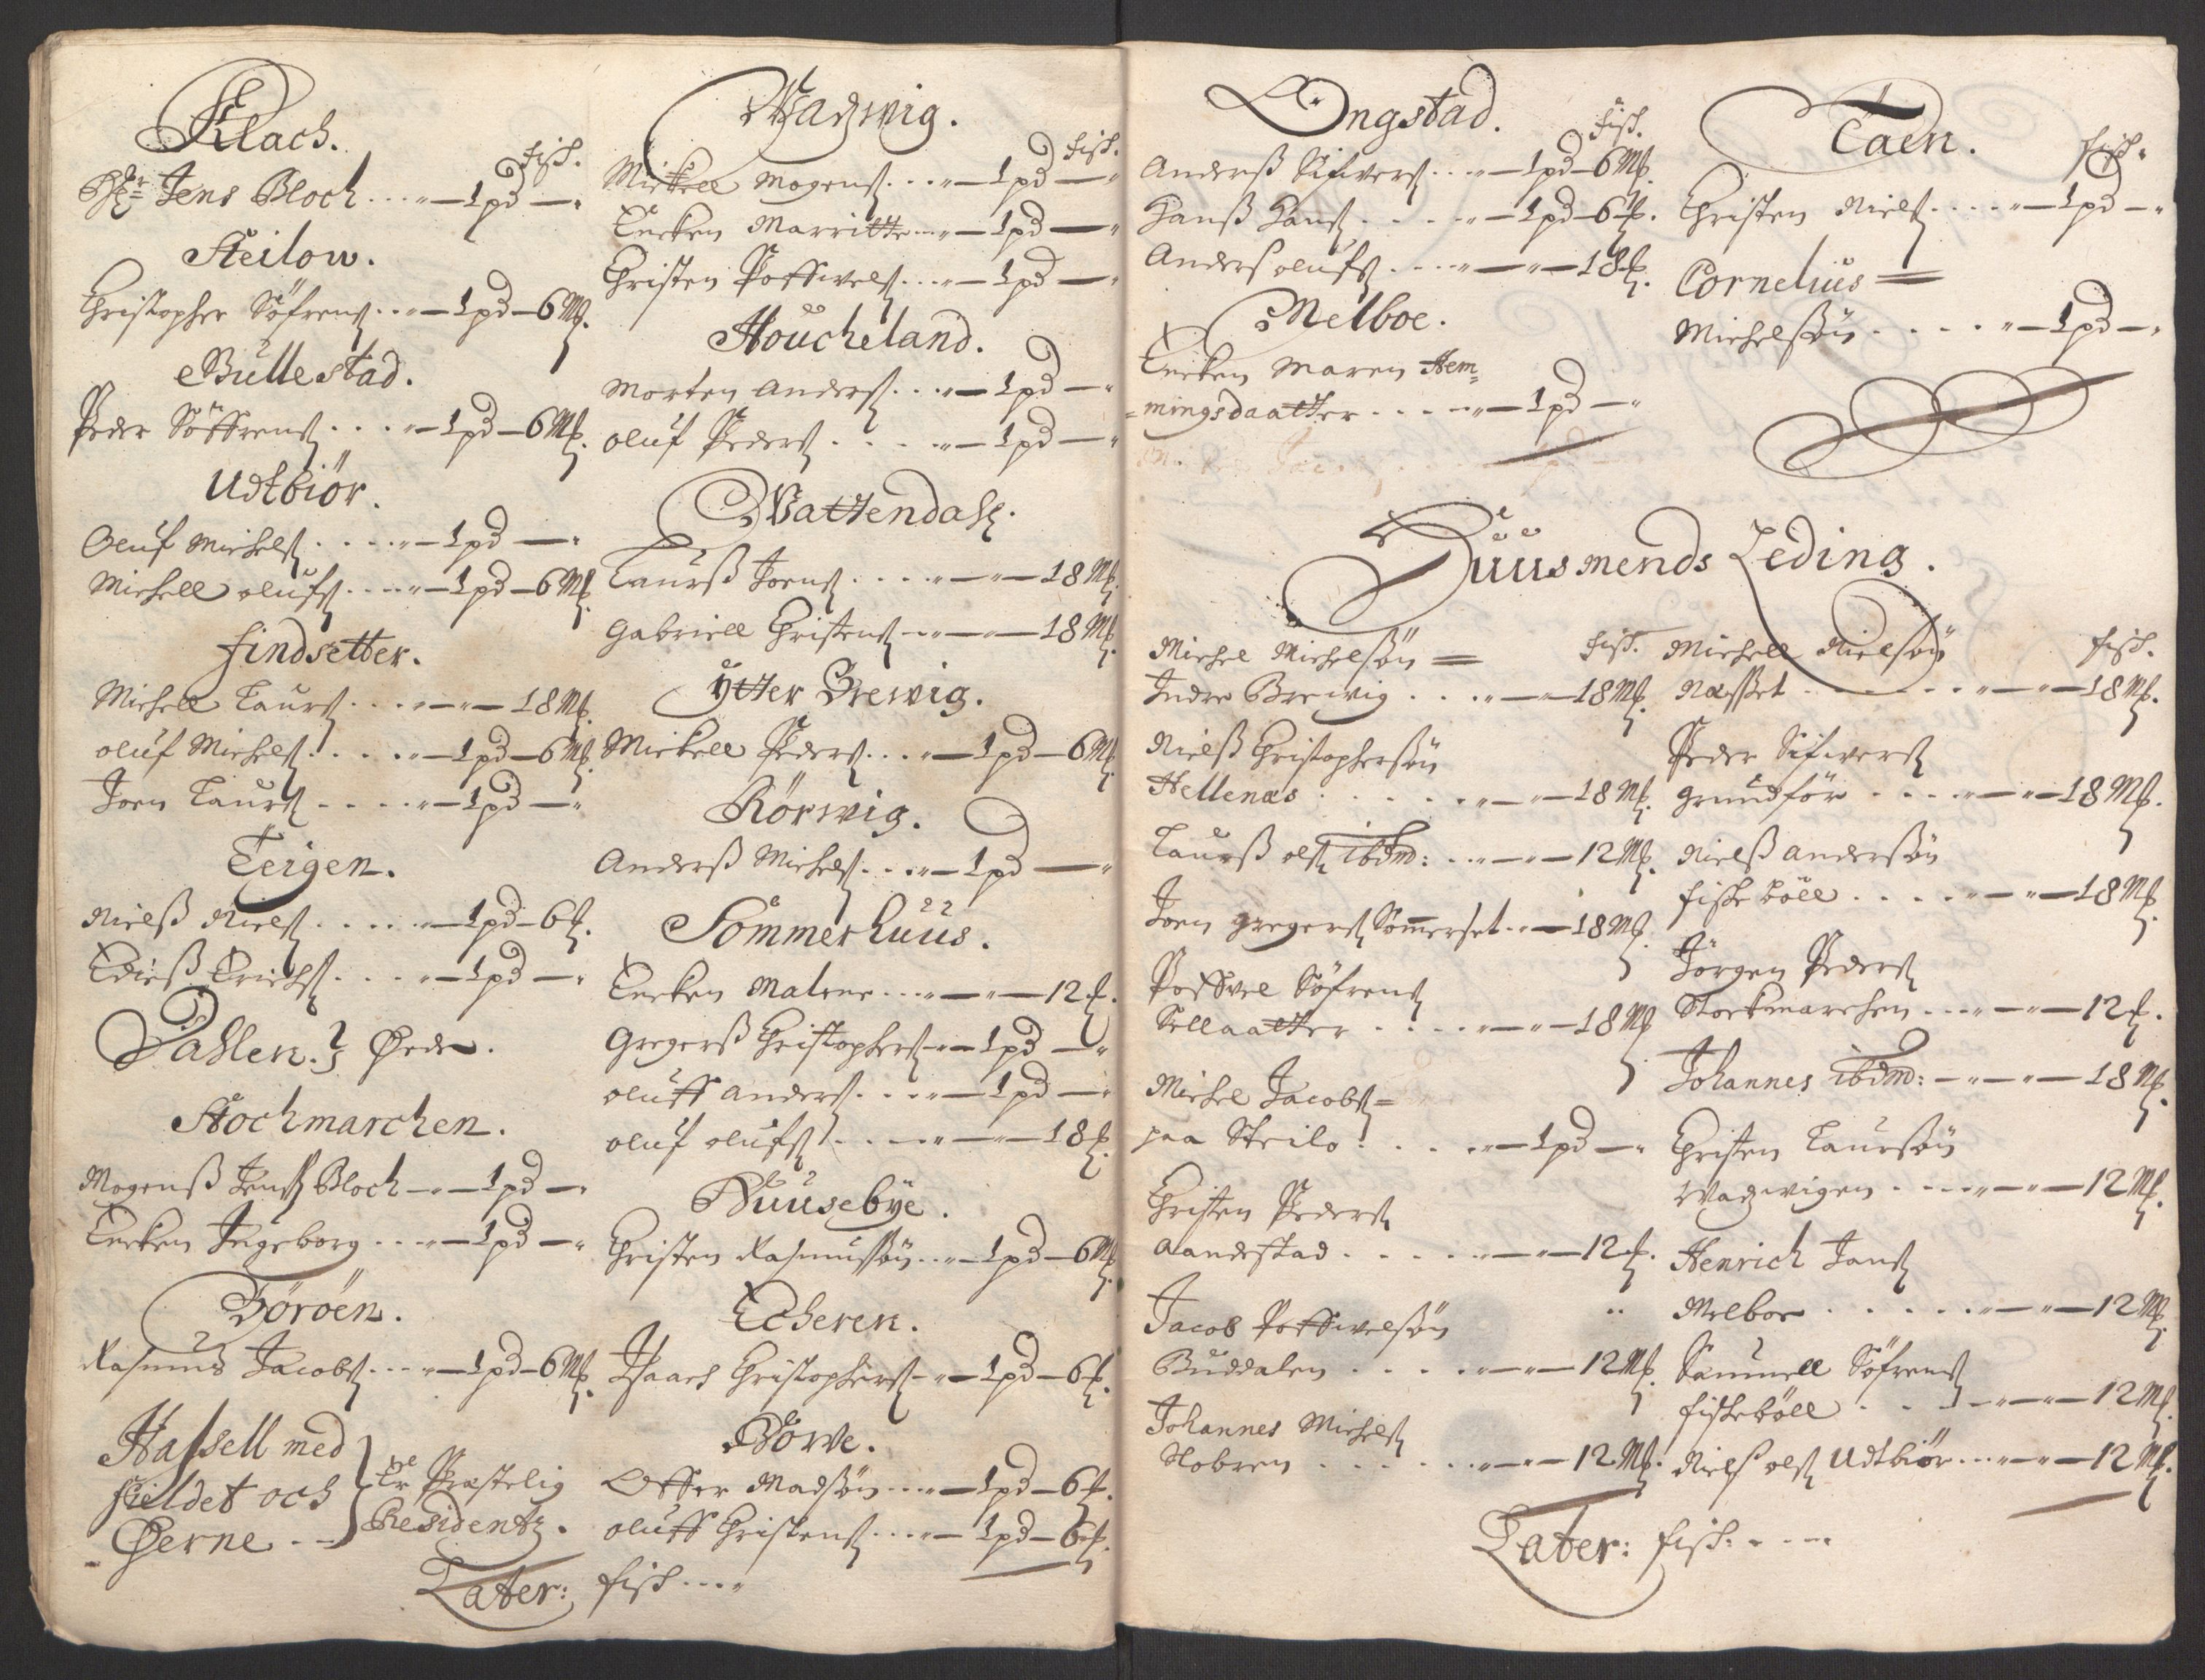 Flach.
fisk.
Hr: Jens Bloch . . . . 1 pd —
Steilow.
Christopher Söfrens . . 1 pd — 6 Mk.
Bullestad.
Peder Söffrens . . . . 1 pd — 6 Mk.
Udtbiör.
Oluf Michels . . . . 1 pd —
Michell olufs . . . . 1 pd — 6 Mk
findsetter.
Michell Laurs . . . — 18 Mk.
oluf Michels . . . . 1 pd — 6 Mk
Joen Laurs . . . . 1 pd —
Teigen.
Nielß Niels . . . . . 1 pd — 6 k.
Erichs . . . . 1 pd —
Dahlen. } Øede.
Stochmarchen.
Mogenß Jens Bloch — 1 pd —
Encken Ingeborg . . . 1 pd —
Böröen.
Rasmus Jacobs . . . . 1 pd — 6 Mk.
Hassell med
fieldet och
Øerne . .
Er Præstelig
Residentz.
Later: fisk . . . .
Wadzwig.
fisk.
Mickell Mogens . . . 1 pd —
Encken Marritte . . 1 pd —
Christen Poffwels . . . 1 pd —
Houcheland.
Morten Anders . . . 1 pd —
oluf Peders . . . . 1 pd —
Wattendahl.
Laurß Joens . . . . — 18 Mk.
Gabriell Christens — 18 Mk.
Ytter Brewig.
Mickell Peders . . . 1 pd — 6 Mk
Rörwig.
Anderß Michels . . . 1 pd —
Sommerhuus.
Encken Malene . . . — 12 k.
Gregerß Christophers — 1 pd —
oluff Anders . . . . 1 pd —
oluf olufs . . . . — 18 k.
Huusebÿe.
Christen Rasmussön . . 1 pd — 6 Mk
Echeren.
Isaach Christophers — 1 pd — 6 k.
Borve.
Offer Madsön . . . 1 pd — 6 k.
oluff Christens . . . 1 pd — 6 k.
Ongstad.
fisk.
Anderß Sifvers . . . 1 pd — 6 Mk.
Hanß Hans . . . . 1 pd — 6 k.
Anders olufs . . . . — 18 k.
Melboe.
Encken Maren Hem=
=mingsdaatter . . . . 1 pd —
Taen.
fisk.
Christen Niels . . . . 1 pd —
Cornelius =
Michelsön . . . . 1 pd —
Huusmends Leding.
fisk.
Michel Michelsön =
Indre Brewig . . . — 18 Mk.
Nielß Christophersön
Hellenæs . . . . . — 18 Mk.
Laurß ols ibdm: . . . — 12 Mk.
Joen Gregers Sommerset . . — 18 Mk.
Poffvel Söfrens
Sellaatter . . . . — 18 Mk
Michel Jacobs =
paa Steilo . . . . 1 pd —
Christen Peders
Aandstad . . . . . — 12 k.
Jacob Poffwelsön
Buddalen . . . . . — 12 Mk.
Johannes Michels
Slobren . . . . . — 12 Mk.
fisk.
Michell Nielsön
Næsset . . . . . — 18 Mk.
Peder Sifwers
grundför . . . . — 18 Mk.
Nielß Andersön
fiskeböll . . . . . — 18 Mk
Jörgen Peders
Stockmarchen . . . — 12 k.
Johannes ibdm: — 18 Mk.
Christen Laursön
Wadzwigen . . . . — 12 Mk.
Henrich Jans
Melboe . . . . . — 12 Mk
Samuell Söfrens
fiskeböll . . . — 12 Mk.
Niels ols Udtbiör . . . — 12 Mk.
Later: fisk: . . . .